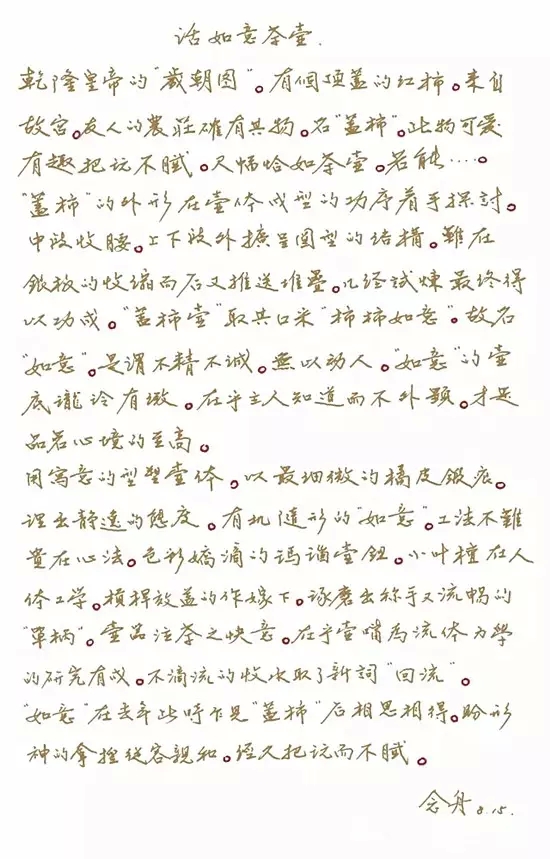 话如意茶壺.
乾隆皇帝的“歲朝图”。有個顶盖的红柿。来自
故宫。友人的農莊確有其物。名“盖柿”。此物可爱
有趣把玩不腻。尺幅恰如茶壶。若能……。
“蓋柿”的外形在壶体成型的功序着手探討。
中段收腰。上下段外擴呈圆型的结構。難在
銀板的收缩而后又推送堆疊。几经試煉最终得
以功成。“蓋柿壶”取其口采“柿柿如意”。故名
“如意”。是谓不精不诚。無以动人。“如意”的壶
底瓏玲有緻。在乎主人知道而不外顯。才是
品茗心境的至高。
用寫意的型塑壶体，以最细微的橘皮鍛痕。
理出静逸的態度。有机随形的“如意”。工法不難
貴在心法。色彩嬌滴的瑪瑙壶鈕。小叶檀在人
体工学。槓桿放盖的作嫁下。琢磨出称手又流暢的
“單柄”。壶品注茶之快意。在乎壶哨為流体力學
的研究有成。不滴流的收水取了新詞“回流”。
“如意”在去年此時乍見“蓋柿”后相思相得。盼形
神的拿捏從容親和。经久把玩而不腻。
念舟 8.15.